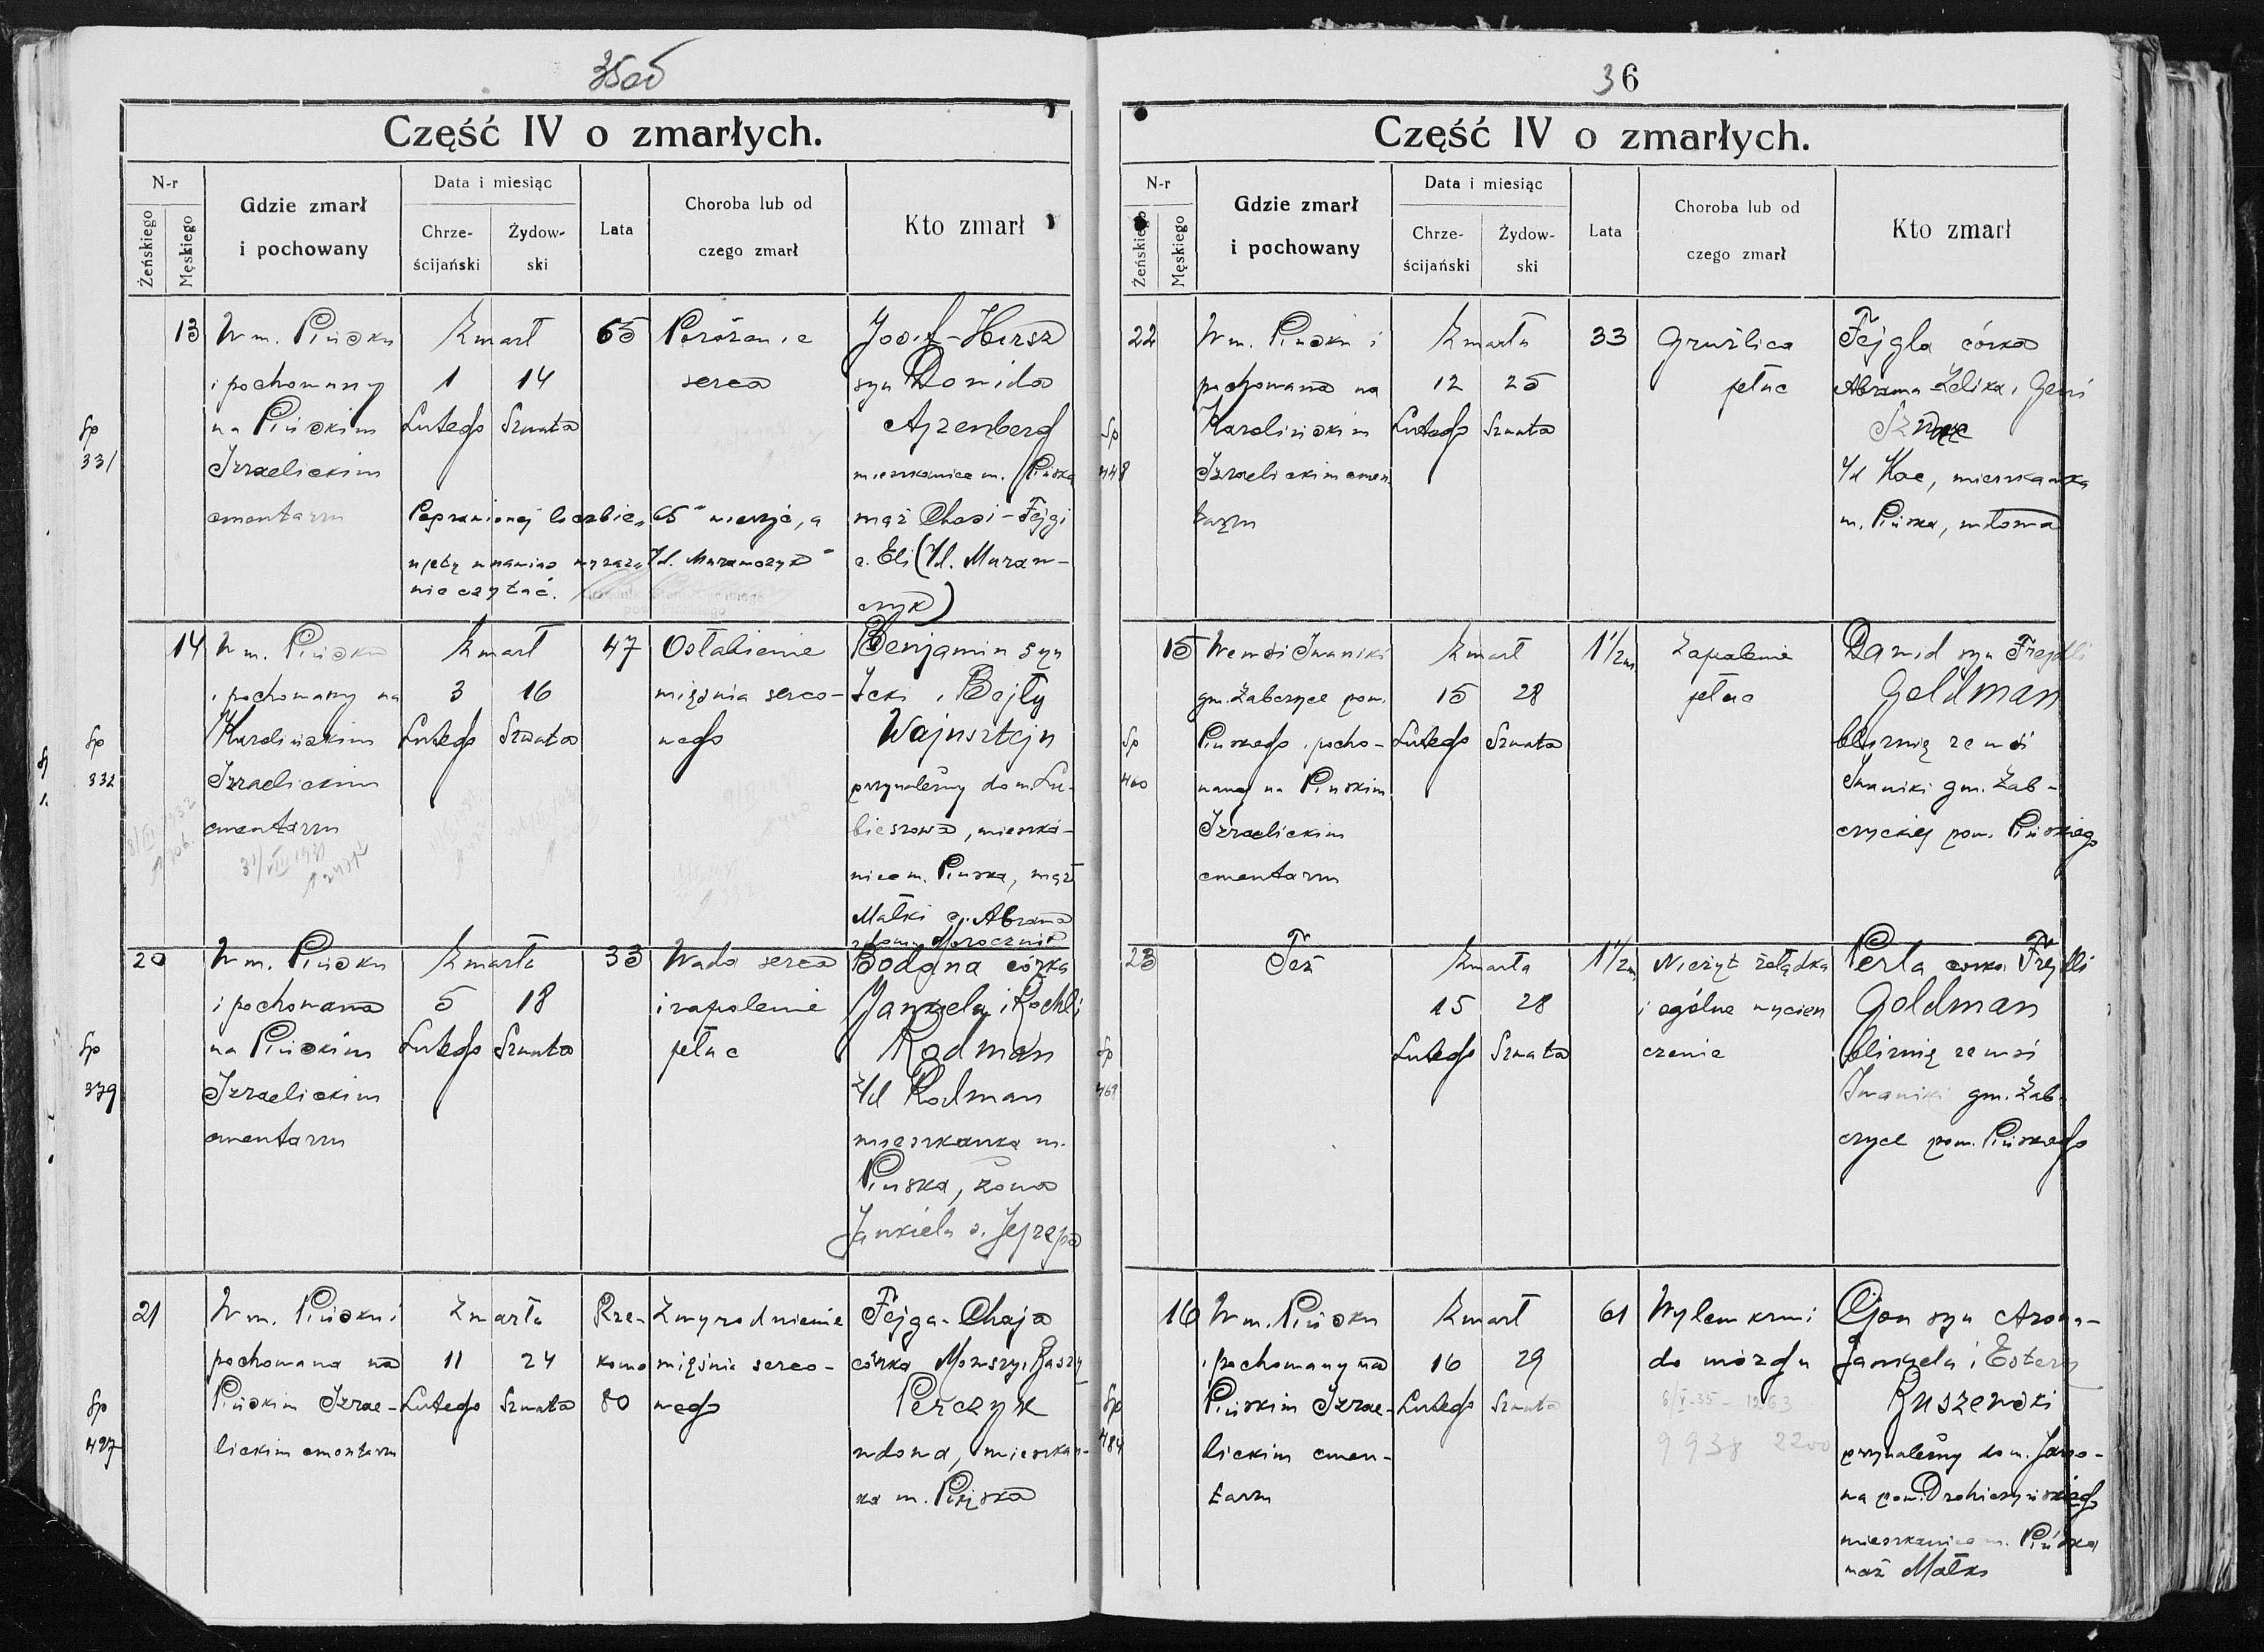 35об
Część IV o zmarłych.
N-r
Żeńskiego
Męskiego
Gdzie zmarł
i pochowany
Data i miesiąc
Chrze-
ścijański
Żydow-
ski
Lata
Choroba lub od
czego zmarł
Kto zmarł
Sp
331
13
W m. Pińsku
i pochowany
na Pińskim
Izraelickim
cmentarzu
Zmarł
1 14
Lutego Szwata
65
Porażenie
serca
Josif-Hersz
syn Dowida
Ajzenberg
mieszkaniec m. Pińska
mąż Chasi-Fejgi
c. Eli (Yd. Muraw-
czyk)
Poprawionej liczbie „65" wierzyć, a
ujęty w nawias wyrazu „Yd. Murawczyk"
nie czytać.
Sp
332
14
W m. Pińsku
i pochowany na
Karolińskim
Izraelickim
cmentarzu
Zmarł
3 16
Lutego Szwata
47
Osłabienie
mięśnia serco-
wego
Benjamin syn
Icki i Bejły
Wajnsztejn
przynależny do m. Lu-
bieszowa, mieszka-
niec m. Pińska, mąż
Małki c. Abrama
z domu Morocznik
Sp
379
20
W m. Pińsku
i pochowana
na Pińskim
Izraelickim
cmentarzu
Zmarła
5 18
Lutego Szwata
33
Wada serca
i zapalenie
płuc
Bodana córka
Jankela i Rochli
Rodman
Yd Rodman
mieszkanka m.
Pińska, żona
Jankiela s. Jejzepa
Sp
427
21
W m. Pińsku i
pochowana na
Pińskim Izrae-
lickim cmentarzu
Zmarła
11 24
Lutego Szwata
Rze-
komo
80
Zwyrodnienie
mięśnia serco-
wego
Fejga-Chaja
córka Mowszy i Baszy
Perczyk
wdowa, mieszkan-
ka m. Pińska
36
Część IV o zmarłych.
N-r
Żeńskiego
Męskiego
Gdzie zmarł
i pochowany
Data i miesiąc
Chrze-
ścijański
Żydow-
ski
Lata
Choroba lub od
czego zmarł
Kto zmarł
Sp
448
22
W m. Pińsku i
pochowana na
Karolińskim
Izraelickim cmen-
tarzu
Zmarła
12 25
Lutego Szwata
33
Gruźlica
płuc
Fejgla córka
Abrama Zelika i Geni
Yd Kac, mieszkanka
m. Pińska, wdowa
Sp
460
15
We wsi Iwaniki
gm. Żabczyce pow.
Pińskiego i pocho-
wany na Pińskim
Izraelickim
cmentarzu
Zmarł
15 28
Lutego Szwata
1 1/2 m
Zapalenie
płuc
Dawid syn Frejdli
Goldman
bliźnię ze wsi
Iwaniki gm. Żab-
czyckiej pow. Pińskiego
Sp
461
23
Też
Zmarła
15 28
Lutego Szwata
1 1/2 m
Nieżyt żołądka
i ogólne wycień
czenie
Perla córka Frejdli
Goldman
bliźnię ze wsi
Iwaniki gm. Żab-
czyce pow. Pińskiego
Sp
484
16
W m. Pińsku
i pochowany na
Pińskim Izrae-
lickim cmen-
tarzu
Zmarł
16 29
Lutego Szwata
61
Wylew krwi
do mózgu
6/V-35 - 1263
9938 2200
Cjon syn Arona-
Jankiela i Estery
Ruszewski
przynależny do m. Jano-
wa pow. Drohiczyńskiego
mieszkaniec m. Pińska
mąż Małki